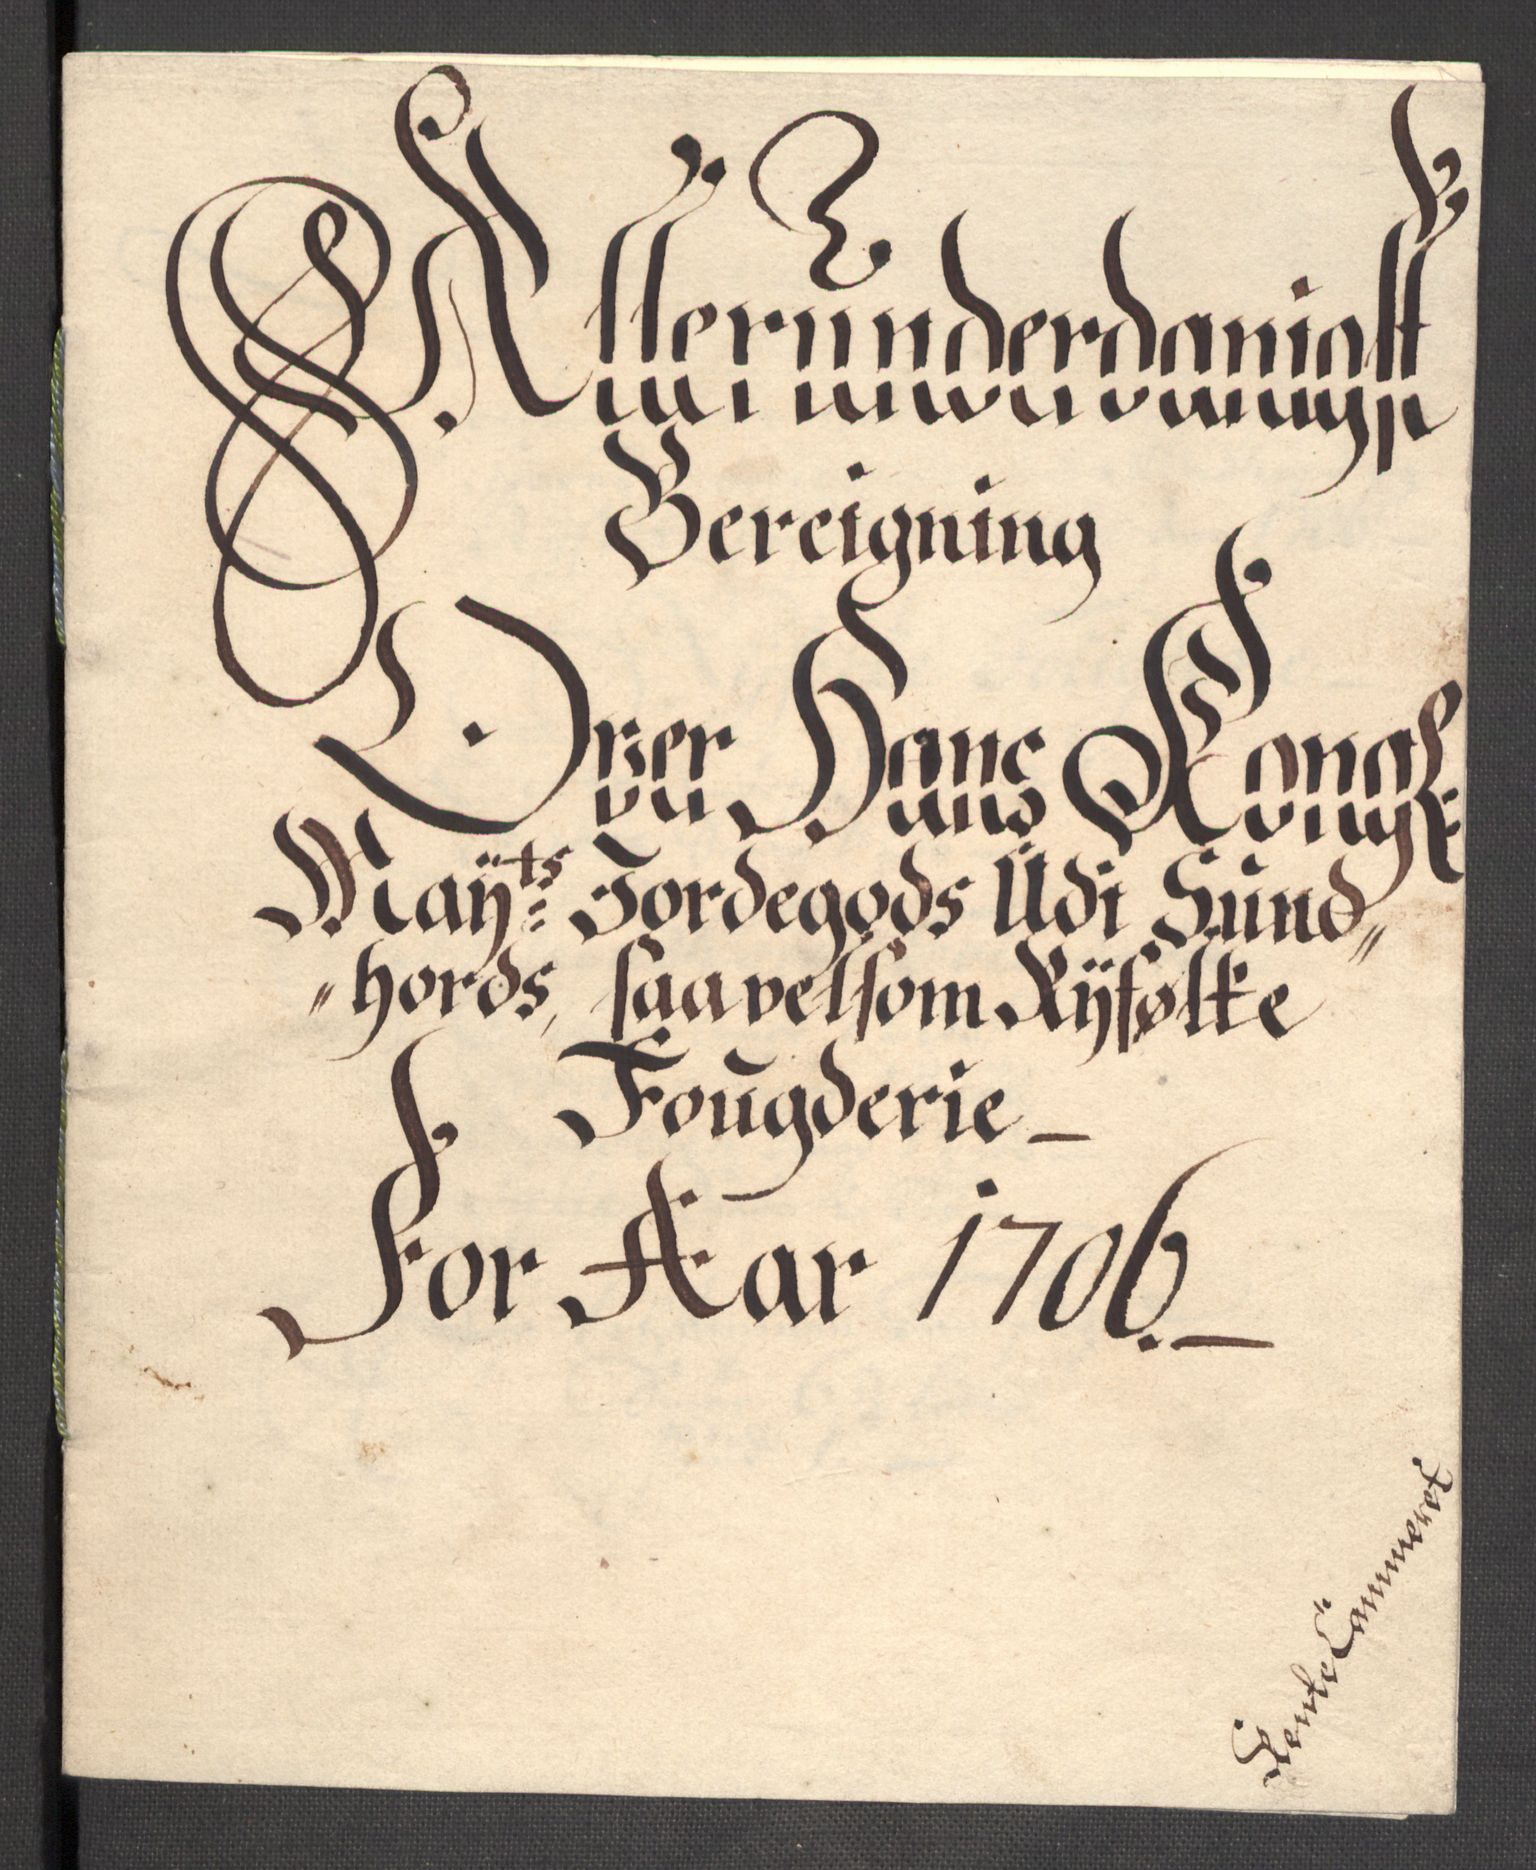 Alleründerdanigst
Bereigning
Over Hans Kongl:
Maÿts: Jordegods Udi Sünd„
„hords, saavelsom Rÿfølke
Foügderie –
For Aar 1706. –
Rente Cammeret